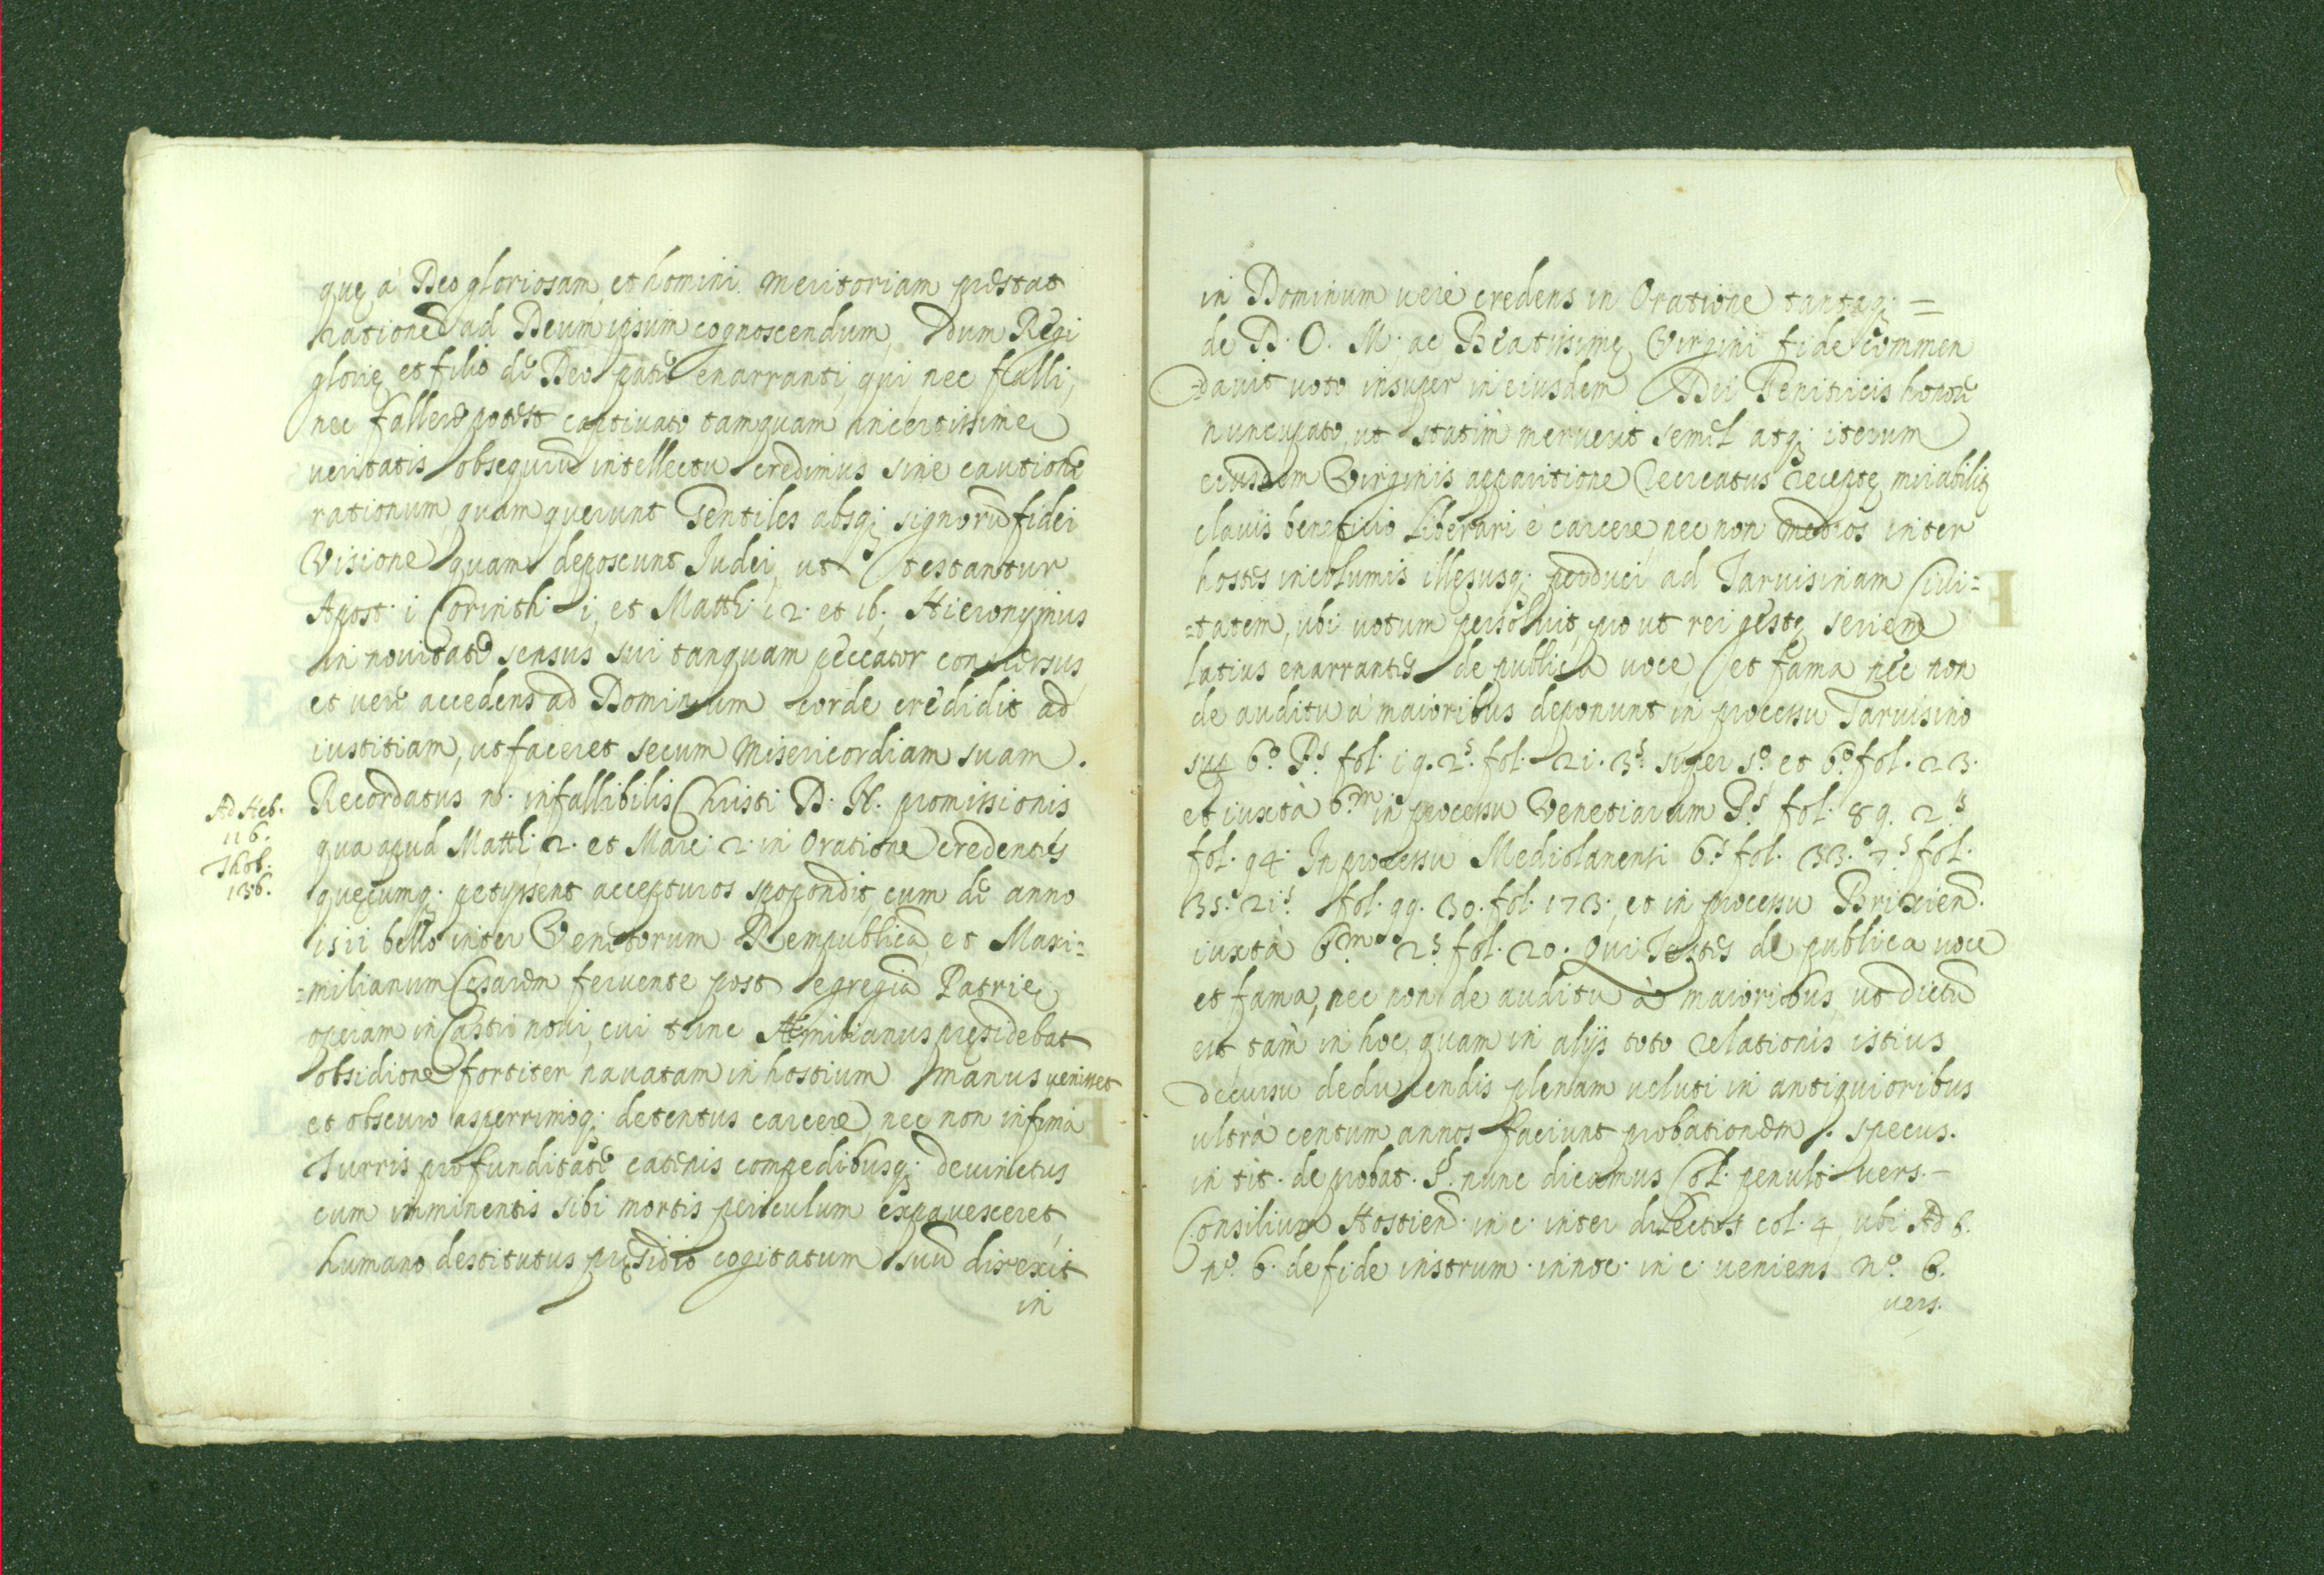 quę à Deo gloriosam, et homini meritoriam prestat
rationẽ ad Deum ipsum cognoscendum, dum Regi
glorię et filio de Deo patre enarranti, qui nec falli,
nec fallere potest captivato tamquam in certissime
veritatis obsequiũ intellectu credimus sine cautione
rationum quam querunt Gentiles absq; signorũ fidei
Visione quam deposcunt Judei, ut testantur
Apost. i Corinth. i, et Matth. 12. et 16. Hieronymus
in novitate sensus sui tanquam peccator conversus
et vere accedens ad Dominum corde credidit ad
iustitiam, ut faceret secum Misericordiam suam.
Ad Heb.
116.
Thob.
136.
Recordatus n. infallibilis Christi D. N. promissionis
qua apud Matth. 2. et Marc. 2. in Oratione credentes
quecumq; petyssent accepturos spopondit, cum de anno
1511 bello inter Venetorum Rempublicã, et Maxi=
=milianum Cęsarem fervente post egregiã Patrię
operam in Castro novi, cui tunc Æmilianus presidebat
obsidione fortiter navatam in hostium manus venisset
et obscuro asperrimoq; detentus carcere, nec non infima
Turris profunditate catenis compedibusq; devinctus
cum imminentis sibi mortis periculum expavesceret,
humano destitutus pręsidio cogitatum suũ direxit
in
in Dominum vere credens in Oratione tantaq; =
de D. O. M. ac Beatissimę Virgini fide commen
=davit voto insuper in eiusdem Dei Genitricis honore
nuncupato, ut statim meruerit semel atq; iterum
eiusdem Virginis apparitione recreatus receptę mirabiliter
clavis beneficio liberari è carcere, nec non medios inter
hostes incolumis illęsusq; perduci ad Tarvisinam Civi=
=tatem, ubi votum persolvit, pro ut rei gestę seriem
latius enarrantes de publica voce, et fama nec non
de auditu à maioribus deponunt in processu Tarvisino
sup 6.º P.s fol. 19. 2.s fol. 21. 3.s super 5.º et 6.º fol. 23.
et iuxtà 6.m in processu Venetiarum P.s fol. 89. 2.s
fol. 94. In processu Mediolanensi 6.s fol. 33. 7.s fol.
35. 21.s fol. 99. 30. fol. 173. et in processu Brixien.
iuxtà 6.m 2.s fol. 20. Qui Testes de publica voce
et fama, nec non de auditu à maioribus, ut dictũ
est tàm in hoc, quam in alijs toto relationis istius
decursu deducendis plenam veluti in antiquioribus
ultrà centum annos faciunt probationem. specus.
in tit. de probat. §. nunc dicamus Col. penult. vers.
Consilium Hostien. in c. inter dilectos col. 4 ubi Ad 6.
nº. 6. de fide instrum. innoc. in c. veniens nº. 6.
vers.